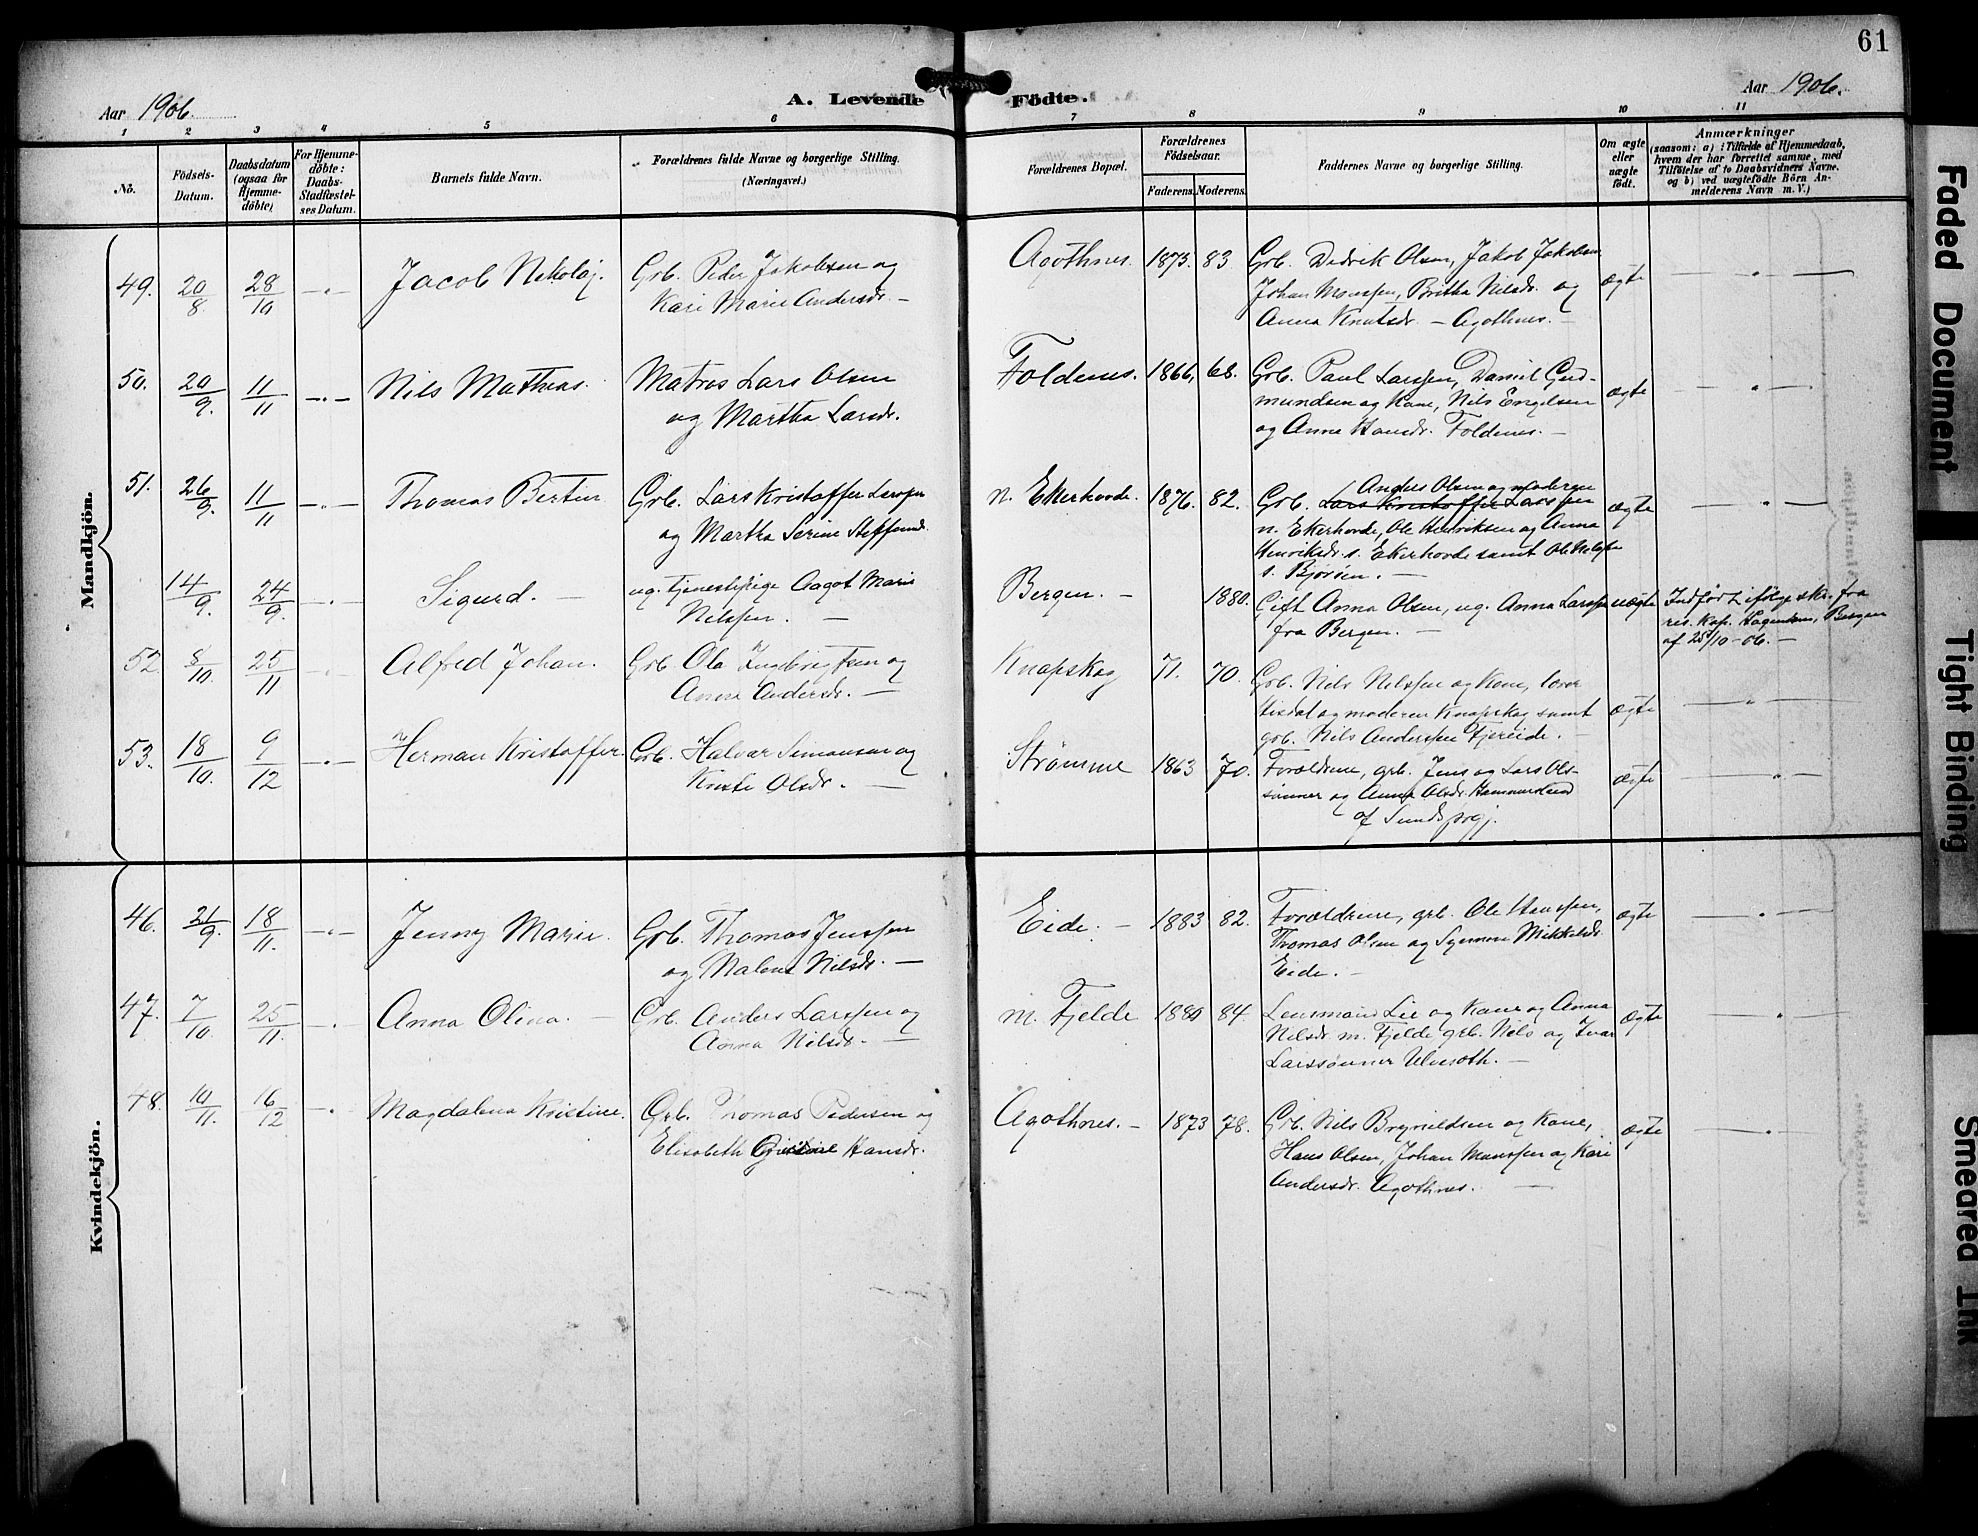 61
Aar 1906.
A. Levende Födte.
Aar 1906.
1 2 3 4 5 6 7 8 9 10 11
No.
Födsels-
Datum.
Daabsdatum
(ogsaa for
Hjemme-
döbte)
For Hjemme-
döbte:
Daabs-
Stadfæstel-
ses Datum.
Barnets fulde Navn.
Forældrenes fulde Navne og borgerlige Stilling.
(Næringsvei.)
Forældrenes Bopæl.
Forældrenes
Födselsaar.
Faderens. Moderens.
Faddernes Navne og borgerlige Stilling.
Om ægte
eller
uægte
födt.
Anmærkninger
(saasom: a) i Tilfælde af Hjemmedaab,
hvem der har forrettet samme, med
Tilföielse af to Daabsvidners Navne,
og b) ved uægtefödte Börn An-
melderens Navn m. V.)
Mandkjön.
49. 20/8. 28/10 Jacob Nikolaj. Grb. Peder Jakobsen og
Kari Marie Andersdr. –
Agothnes. 1873. 83 Grb. Didrik Olsen, Jakob Jakobsen,
Johan Monssen, Britha Nilsdr. og
Anna Knutsdr. – Agothnes. –
ægte
50. 20/9. 11/11 Nils Mathias. Matros Lars Olsen
og Martha Larsdr.
Foldenes. 1866, 68. Grb. Paul Larssen, Daniel Gud-
mundsen og Kone, Nils Engelsen
og Anna Hansdr. Foldenes. –
ægte
51. 26/9. 11/11 Thomas Bertin Grb. Lars Kristoffer Larssen
og Martha Serine Steffensdr.
n. Ekerhovde. 1876. 82. Anders Olsen og moderen
Grb. Lars Kristoffer Larssen
n. Ekerhovde, Ole Henriksen og Anna
Henriksdr. s. Ekerhovde samt Ole
s. Bjorøen. –
ægte
14/9. 24/9. Sigurd. – ug. Tjenestepige Aagot Marie
Nilssen. –
Bergen. – 1880. Gift Anna Olsen, ug. Anna Larssen
fra Bergen. –
uægte
Indført ifølge skr. fra
res. Kap. Bergen
af 25/10-06. –
52 8/10. 25/11 Alfred Johan. Grb. Ola Ingebrigtsen og
Anna Andersdr. –
Knapskog 71. 70. Grb. Nils Nilssen og Kone,
og moderen Knapskog samt
grb. Nils Anderssen Fjereide. –
ægte
53. 18/10. 9/12 Herman Kristoffer. Grb. Halvar Simonsen og
Kriste Olsdr. –
Strømme 1863 70. Forældrene, grb. Jens og Lars Ols-
sønner og Anna Olsdr. Hammersland
af Sunds prgj.
ægte
Kvindekjön.
46. 21/9. 18/11. Jenny Marie. Grb. Thomas Jenssen
og Malene Nilsdr. –
Eide. – 1883 82. Forældrene, grb. Ole Hanssen,
Thomas Olsen og Synneve Mikkelsdr.
Eide. –
ægte
47. 7/10. 25/11. Anna Olina. – Grb. Anders Larssen og
Anna Nilsdr. –
m. Fjelde 1880 84. Lensmand Lie og Kone og Anna
Nilsdr. m. Fjelde grb. Nils og Ivar
Larssønner Ulvesoth. –
ægte
48. 10/11. 16/12 Magdalena Kristine. Grb. Thomas Pedersen og
Elisabeth Hansdr.
Agothnes. – 1873 78. Grb. Nils Brynildsen og Kone,
Hans Olsen, Johan Monssen og Kari
Andersdr. Agothnes. –
ægte
Faded Document
Tight Binding
Smeared Ink